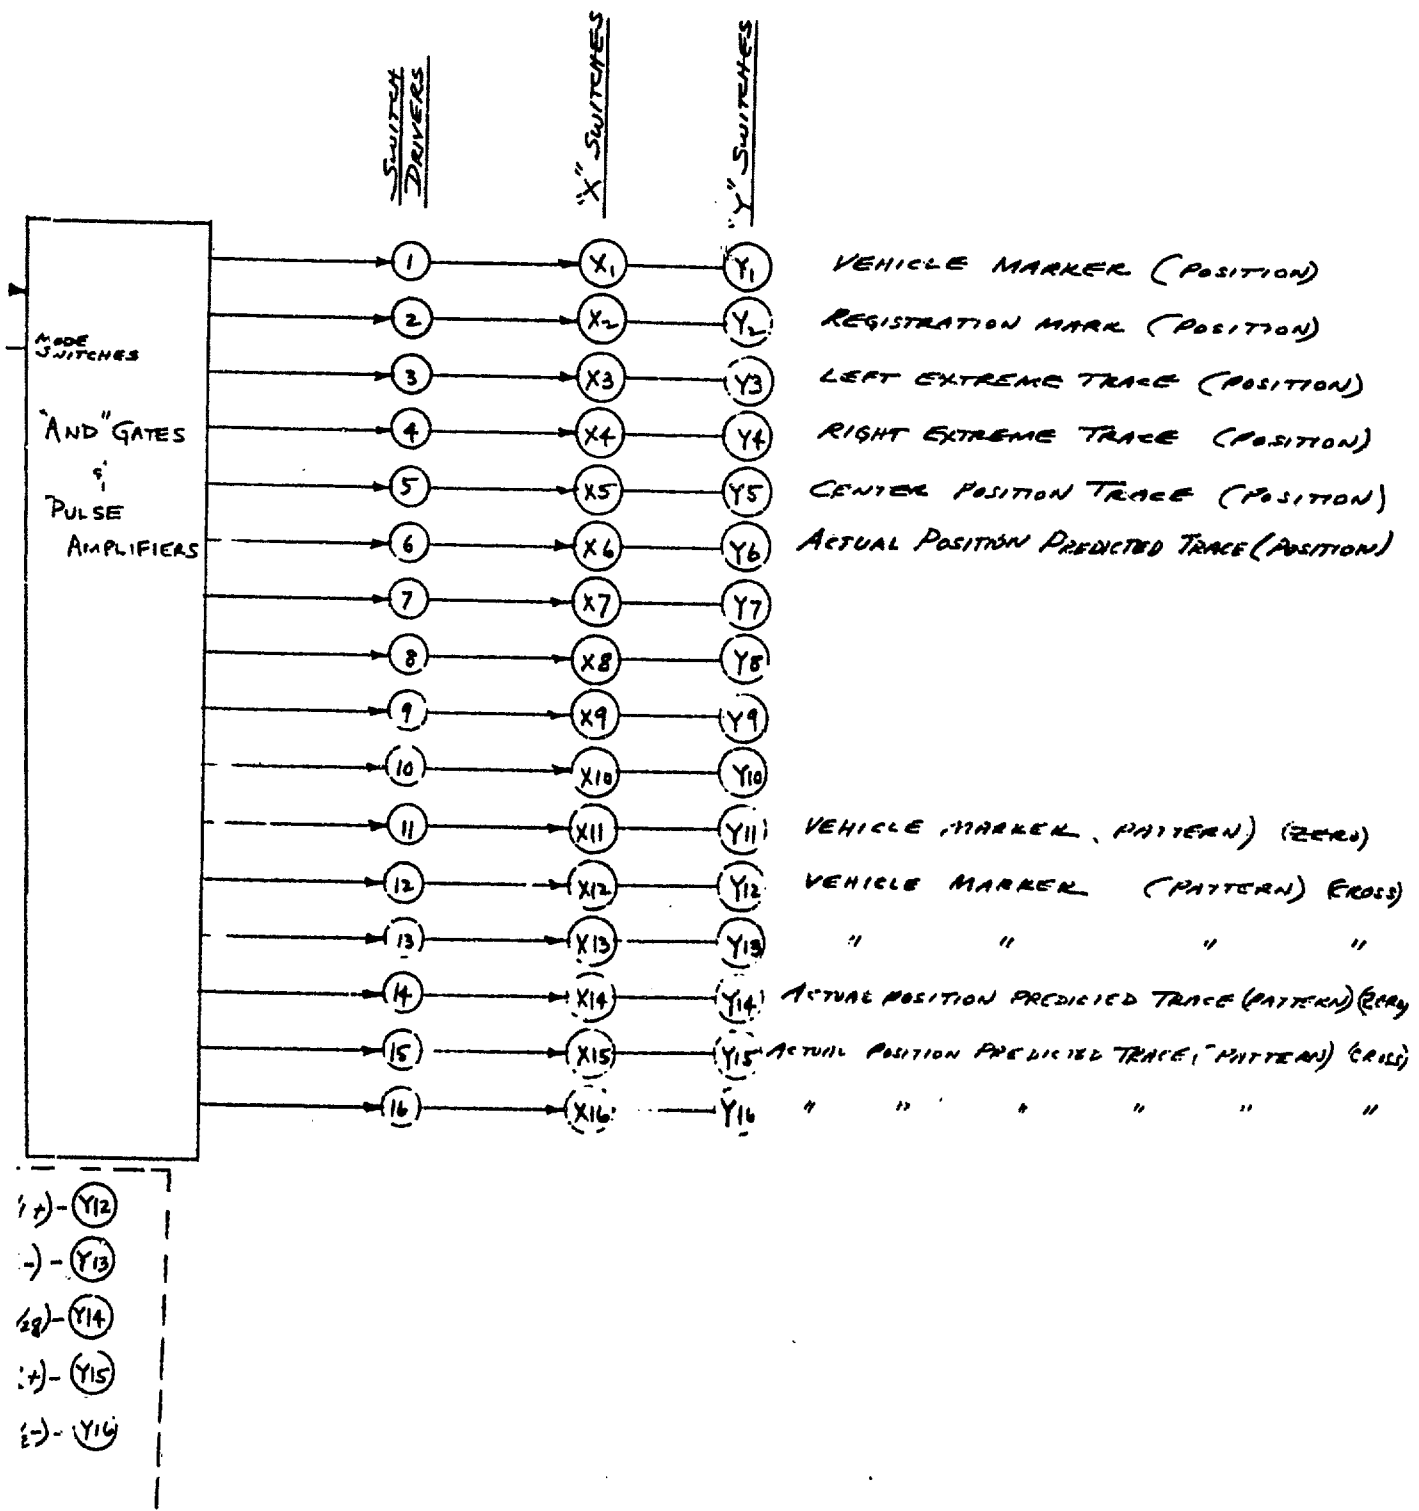 SWITCH
DRIVERS
"X" SWITCHES
"Y" SWITCHES
MODE
SWITCHES
"AND" GATES
&
PULSE
AMPLIFIERS
1 X1 Y1 VEHICLE MARKER (POSITION)
2 X2 Y2 REGISTRATION MARK (POSITION)
3 X3 Y3 LEFT EXTREME TRACE (POSITION)
4 X4 Y4 RIGHT EXTREME TRACE (POSITION)
5 X5 Y5 CENTER POSITION TRACE (POSITION)
6 X6 Y6 ACTUAL POSITION PREDICTED TRACE (POSITION)
7 X7 Y7
8 X8 Y8
9 X9 Y9
10 X10 Y10
11 X11 Y11 VEHICLE MARKER PATTERN) (ZERO)
12 X12 Y12 VEHICLE MARKER (PATTERN) (CROSS)
13 X13 Y13 " " " "
14 X14 Y14 ACTUAL POSITION PREDICTED TRACE (PATTERN) (ZERO)
15 X15 Y15 ACTUAL POSITION PREDICTED TRACE (PATTERN) (CROSS)
16 X16 Y16 " " " " " "
+) - Y12
-) - Y13
) - Y14
+) - Y15
-) - Y16